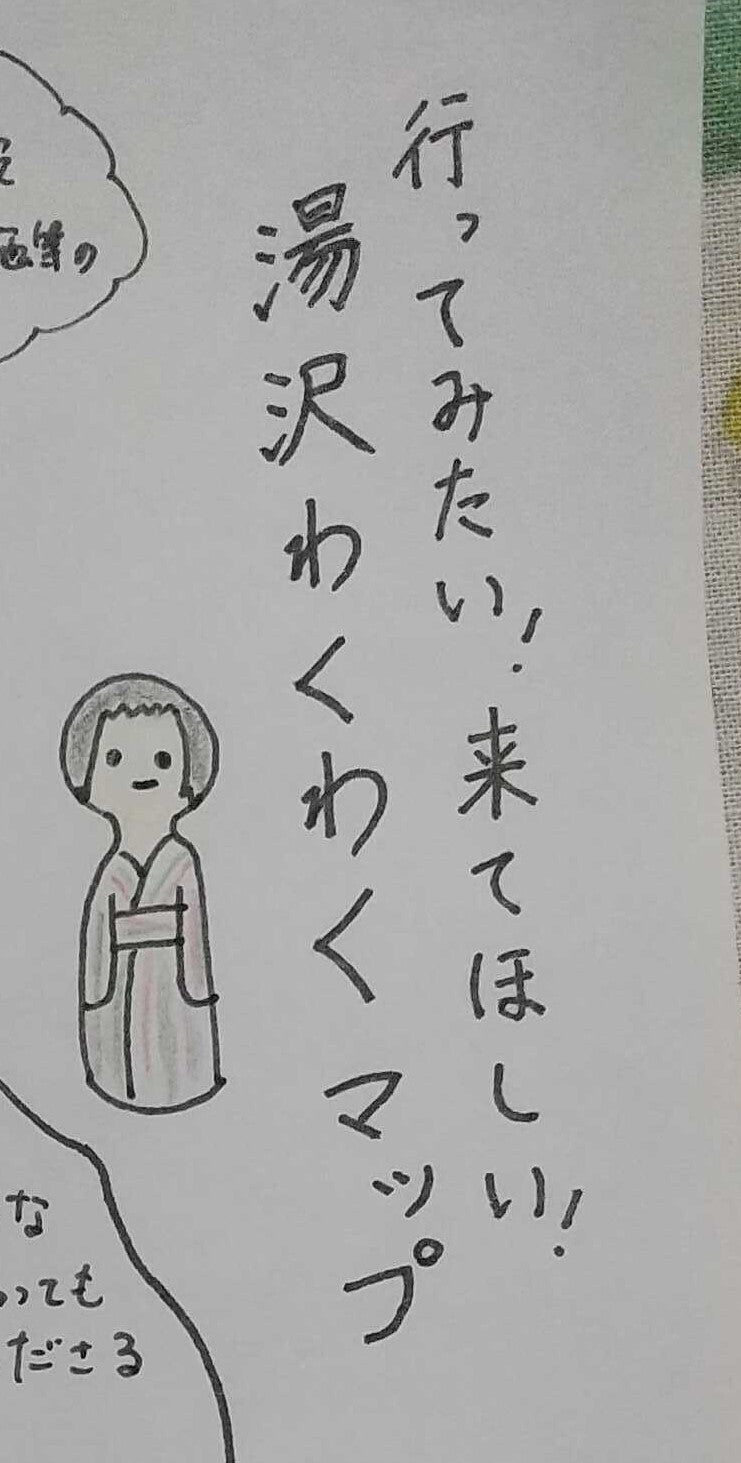 行ってみたい！来てほしい！
湯沢わくわくマップ
等の
な
っても
ださる